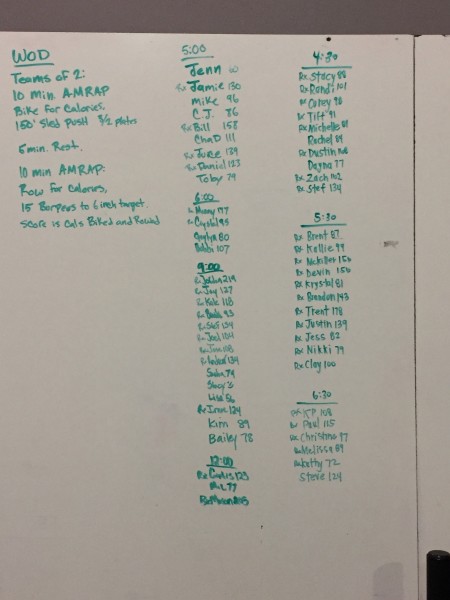 WOD
Teams of 2:
10 min. AMRAP
Bike for Calories,
150' Sled Push
5 min. Rest.
10 min AMRAP:
Row for Calories,
15 Burpees to 6 inch target.
Score is Cals Biked and Rowed
5:00
Jenn
Rx Jamie 130
Mike 96
C.J. 86
Rx Bill 158
Chad 111
Rx 139
Rx Daniel 123
Toby 79
6:00
197
Rx Crystal 95
80
107
9:00
219
Rx Jay 127
Rx Kate 118
Rx 93
Rx Stef 134
Rx Joel
Rx
Rx 134
74
Stacy
Lisa 56
Rx Irene 124
Kim 89
Bailey 78
12:00
Rx Curtis 123
77
4:30
Rx Stacy 88
Rx Randi 101
Rx Corey 98
Rx Tiff 91
Rx Michelle
Rachel 89
Rx Dustin
Dayna 77
Rx Zach 102
Rx Stef 134
5:30
Rx Brent 87
Rx Kellie 99
Rx 156
Rx Devin 156
Rx Krystal 81
Rx Brandon 143
Rx Trent 178
Rx Justin 139
Rx Jess 82
Rx Nikki 79
Rx Clay 100
6:30
Rx KP 108
Rx Paul 115
Rx Christina 97
Rx Melissa 89
Rx Kathy 72
Steve 124